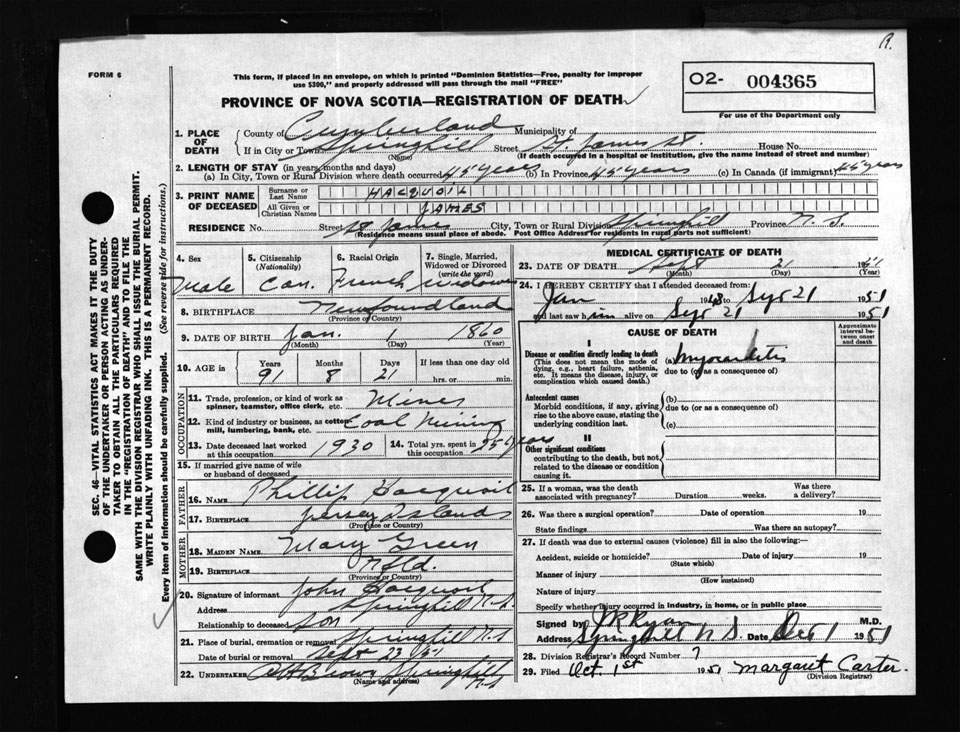 R.
FORM 6
This form, if placed in an envelope, on which is printed "Dominion Statistics—Free, penalty for improper
use $300," and properly addressed will pass through the mail "FREE"
PROVINCE OF NOVA SCOTIA—REGISTRATION OF DEATH
O2- 004365
For use of the Department only
1. PLACE OF DEATH
County of Cumberland Municipality of
If in City or Town Springhill Street St. James St. House No.
(Name) (If death occurred in a hospital or institution, give the name instead of street and number)
2. LENGTH OF STAY (in years, months and days)
(a) In City, Town or Rural Division where death occurred 45 years (b) In Province 45 years (c) In Canada (if immigrant) 45 years
3. PRINT NAME OF DECEASED
Surname or Last Name HACQUOIL
All Given or Christian Names JAMES
RESIDENCE No. Street St. James City, Town or Rural Division Springhill Province N. S.
(Residence means usual place of abode. Post Office Address for residents in rural parts not sufficient)
4. Sex Male
5. Citizenship (Nationality) Can.
6. Racial Origin French
7. Single, Married, Widowed or Divorced (write the word) Widower
8. BIRTHPLACE Newfoundland
(Province or Country)
9. DATE OF BIRTH Jan. 1 1860
(Month) (Day) (Year)
10. AGE in Years 91 Months 8 Days 21 If less than one day old
hrs. or min.
OCCUPATION
11. Trade, profession, or kind of work as spinner, teamster, office clerk, etc. Miner
12. Kind of industry or business, as cotton mill, lumbering, bank, etc. Coal Mining
13. Date deceased last worked at this occupation 1930
14. Total yrs. spent in this occupation 25 years
15. If married give name of wife or husband of deceased
FATHER
16. NAME Phillip Hacquoil
17. BIRTHPLACE Jersey Islands
(Province or Country)
MOTHER
18. MAIDEN NAME Mary Green
19. BIRTHPLACE Nfld.
(Province or Country)
20. Signature of informant John Hacquoil
Address Springhill N.S.
Relationship to deceased son
21. Place of burial, cremation or removal Springhill N.S
Date of burial or removal Sept 23/51
22. UNDERTAKER Brown Springhill N.S
(Name and address)
MEDICAL CERTIFICATE OF DEATH
23. DATE OF DEATH Sept 21 1951
(Month) (Day) (Year)
24. I HEREBY CERTIFY that I attended deceased from:
Jan 1948 to Sept 21 1951
and last saw him alive on Sept 21 1951
CAUSE OF DEATH
Approximate interval between onset and death
I
Disease or condition directly leading to death (a) myocarditis
(This does not mean the mode of dying, e.g., heart failure, asthenia, etc. It means the disease, injury, or complication which caused death.)
due to (or as a consequence of)
Antecedent causes
Morbid conditions, if any, giving rise to the above cause, stating the underlying condition last.
(b)
due to (or as a consequence of)
(c)
II
Other significant conditions
contributing to the death, but not related to the disease or condition causing it.
25. If a woman, was the death associated with pregnancy? Duration weeks. Was there a delivery?
26. Was there a surgical operation? Date of operation 19
State findings Was there an autopsy?
27. If death was due to external causes (violence) fill in also the following:—
Accident, suicide or homicide? Date of injury 19
(State which)
Manner of injury
(How sustained)
Nature of injury
Specify whether injury occurred in industry, in home, or in public place
Signed by J R Ryan M.D.
Address Springhill N S. Date Oct 1 1951
28. Division Registrar's Record Number 7
29. Filed Oct. 1st 1951 Margaret Carter.
(Division Registrar)
SEC. 46—VITAL STATISTICS ACT MAKES IT THE DUTY
OF THE UNDERTAKER OR PERSON ACTING AS UNDER-
TAKER TO OBTAIN ALL THE PARTICULARS REQUIRED
IN THE "REGISTRATION OF DEATH" AND TO FILE THE
SAME WITH THE DIVISION REGISTRAR WHO SHALL ISSUE THE BURIAL PERMIT.
WRITE PLAINLY WITH UNFADING INK. THIS IS A PERMANENT RECORD.
Every item of information should be carefully supplied. (See reverse side for instructions.)